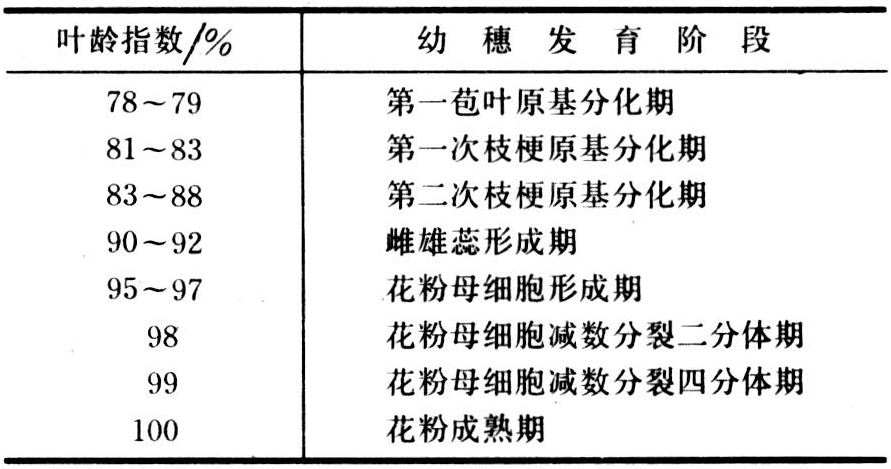 叶龄指数/% 幼穗发育阶段
78～79 第一苞叶原基分化期
81～83 第一次枝梗原基分化期
83～88 第二次枝梗原基分化期
90～92 雌雄蕊形成期
95～97 花粉母细胞形成期
98 花粉母细胞减数分裂二分体期
99 花粉母细胞减数分裂四分体期
100 花粉成熟期